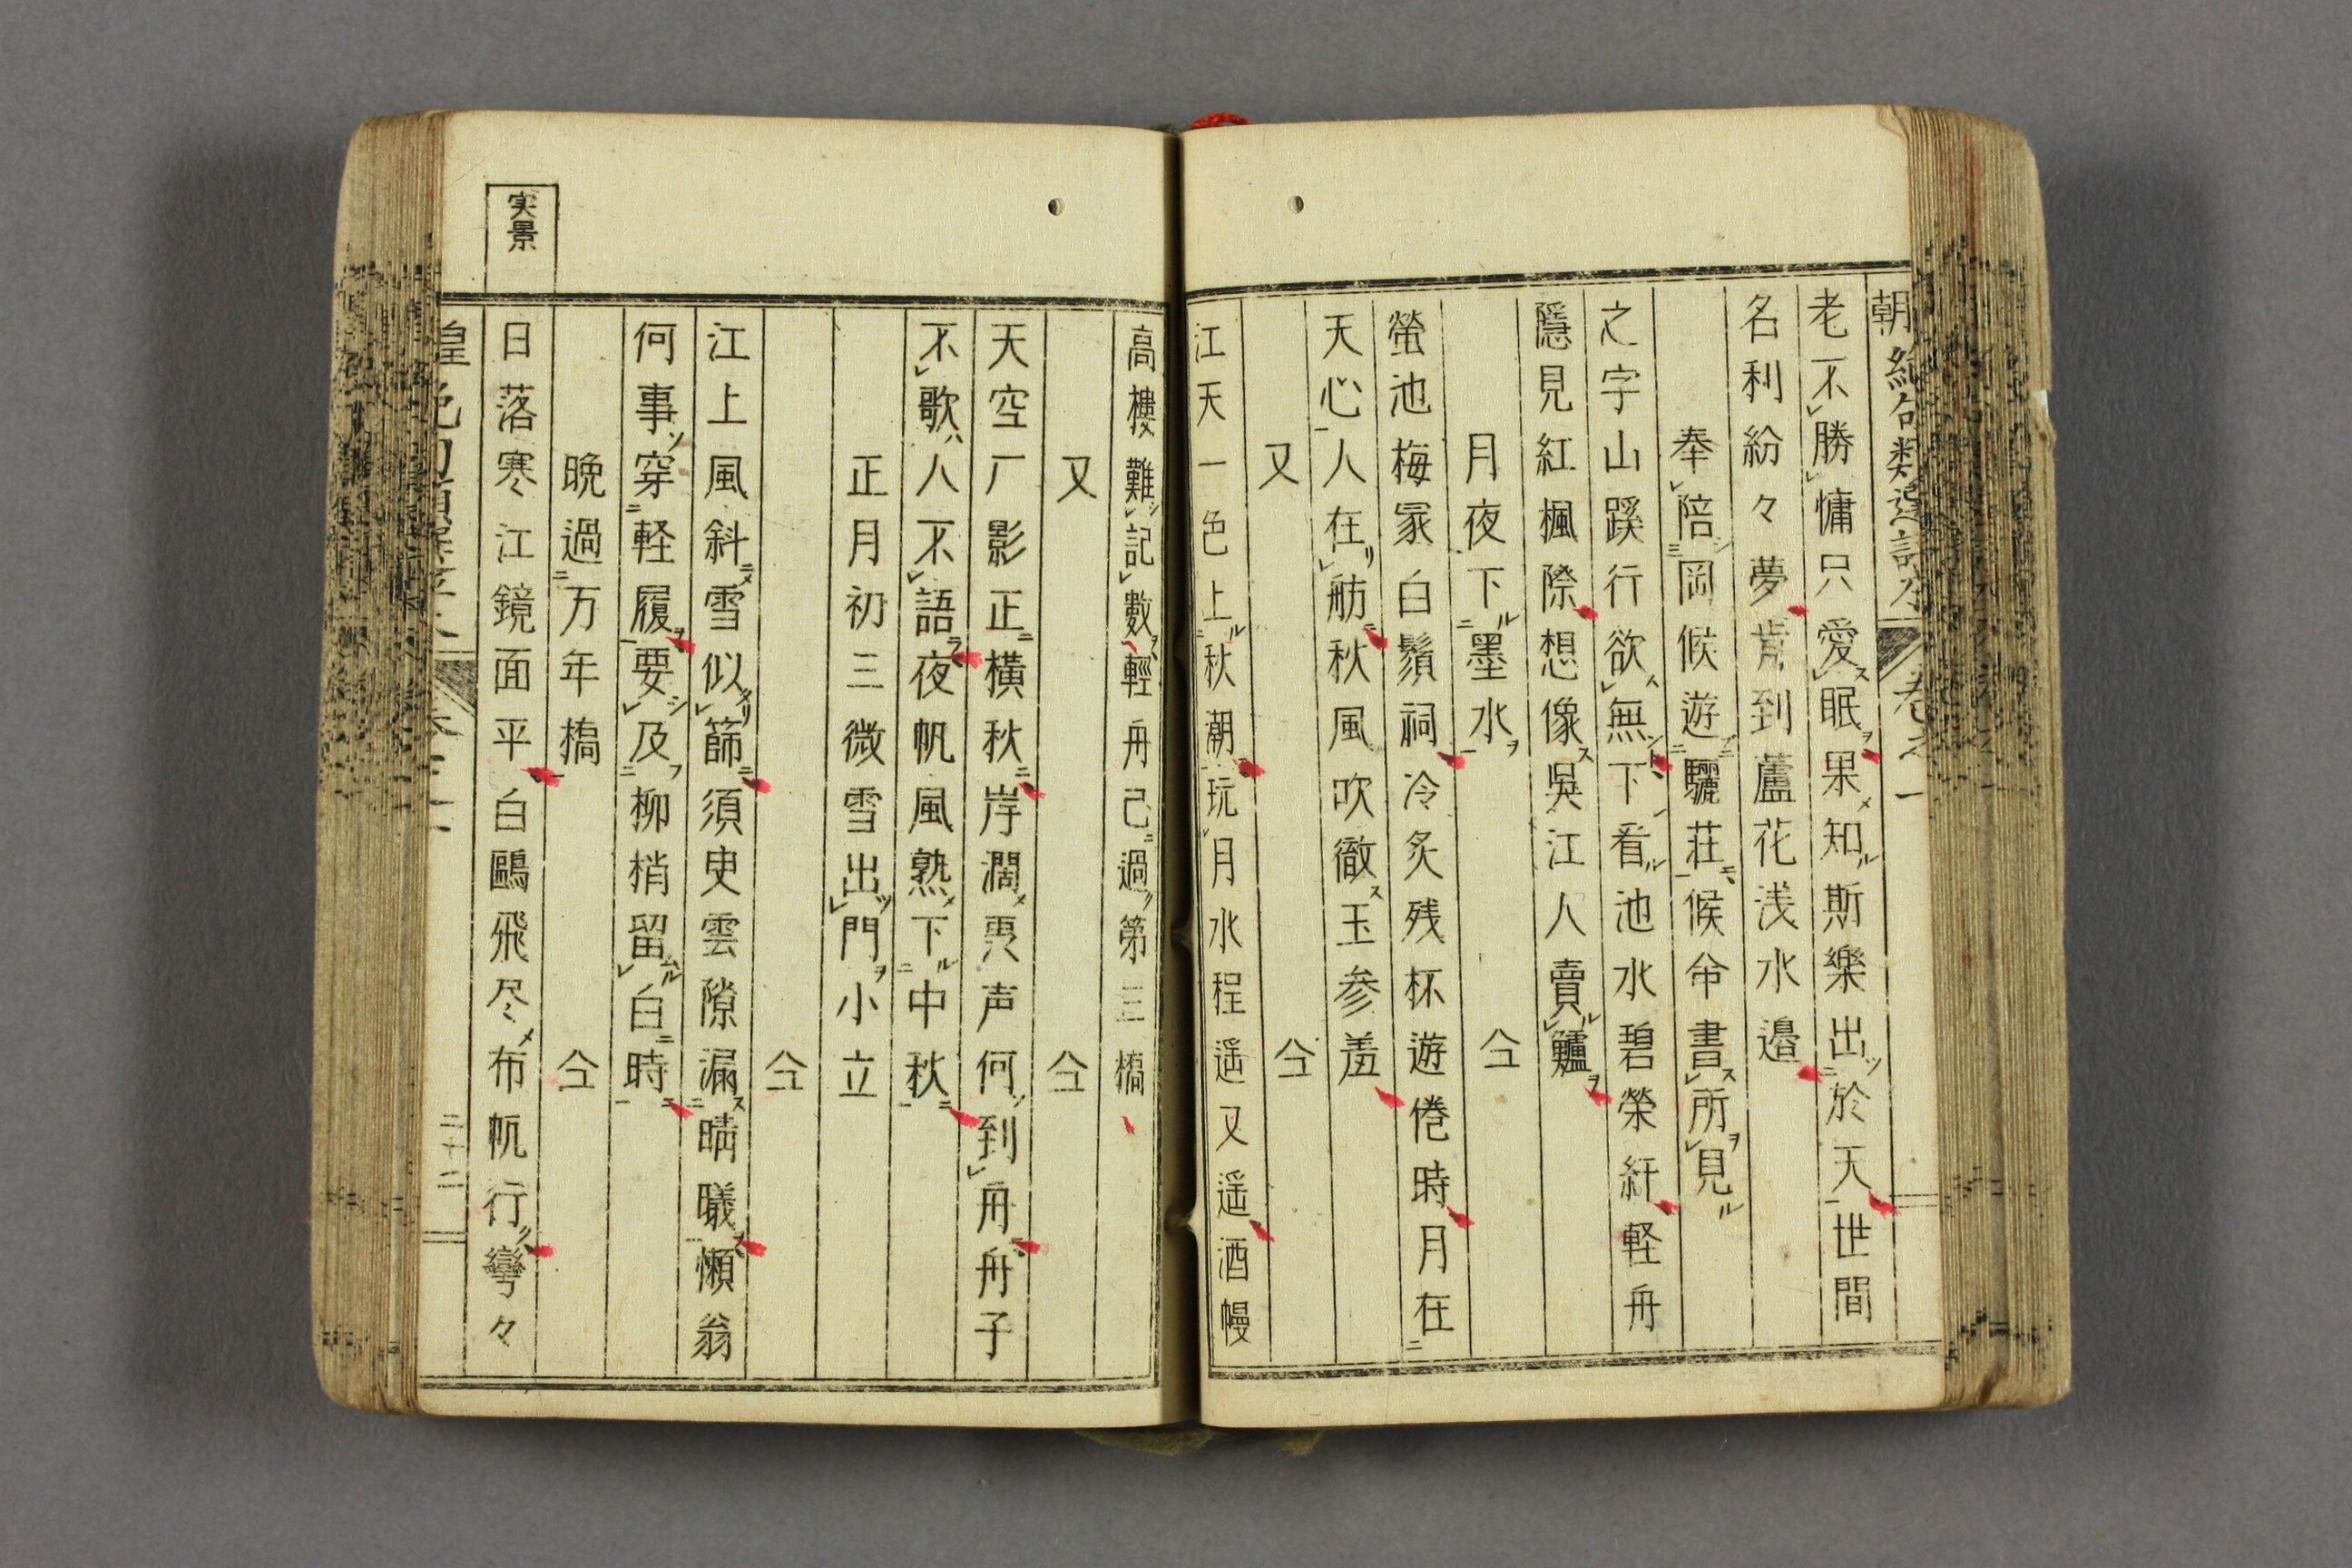 老不勝慵只愛眠果知斯樂出於天世間
名利紛々夢肯到蘆花浅水邉
奉陪岡候遊驪荘候命書所見
之字山蹊行欲無下看池水碧縈紆軽舟
隱見紅楓際想像吳江人賣鱸
月夜下墨水 仝
螢池梅冢白鬚祠冷炙残杯遊倦時月在
天心人在舫秋風吹徹玉参差
又 仝
江天一色上秋潮玩月水程遥又遥酒幔
高樓難記數輕舟已過第三橋
又 仝
天空厂影正橫秋岸濶更声何到舟舟子
不歌人不語夜帆風熟下中秋
正月初三微雪出門小立
仝
江上風斜雪似篩須臾雲隙漏晴曦懶翁
何事穿軽履要及柳梢留白時
晩過万年橋 仝
実景
日落寒江鏡面平白鷗飛尽布帆行彎々
二十二